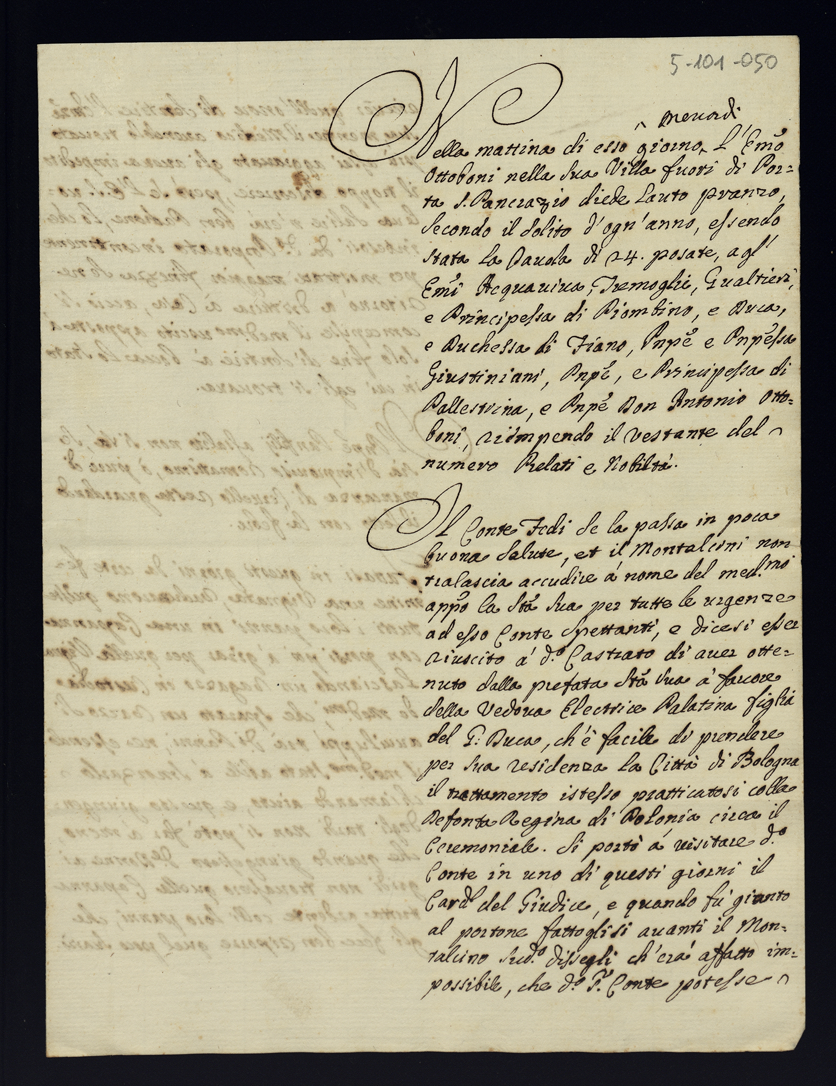 5-101-050
mercordi
Nella mattina di esso ^ giorno L'Em̃o
Ottoboni nella sua Villa fuori di Por-
ta S. Pancrazio diede lauto pranzo,
secondo il solito d'ogn'anno, essendo
stata la Tavola di 24. posate, agl'
Em̃i Acquaviva, Tremoglie, Gualtieri,
e Principessa di Piombino, e Duca,
e Duchessa di Fiano, Pnpẽ e Pnpẽssa
Giustiniani, Pnpẽ, e Principessa di
Pallestrina, e Pnpẽ Don Antonio Otto-
boni, riempendo il restante del
numero Prelati e Nobiltà.
Il Conte Fedi se la passa in poca
buona salute, et il Montalcini non
tralascia accudire á nome del med.mo
appõ la Stã Sua per tutte le urgenze
ad esso Conte spettanti, e dicesi esser
riuscito á d.o Castrato di aver otte-
nuto dalla prefata Stã Sua á favore
della Vedova Electrice Palatina figlia
del G: Duca, ch'è facile di prendere
per sua residenza la Città di Bologna
il trattamento istesso pratticatosi colla
Defonta Regina di Polonia circa il
Ceremoniale. Si portò á visitare d.o
Conte in uno di questi giorni il
Card.l del Giudice, e quando fú giunto
al portone fattoglisi avanti il Mon-
talcino sud.o dissegli ch'era affatto im-
possibile, che d.o S.r Conte potesse